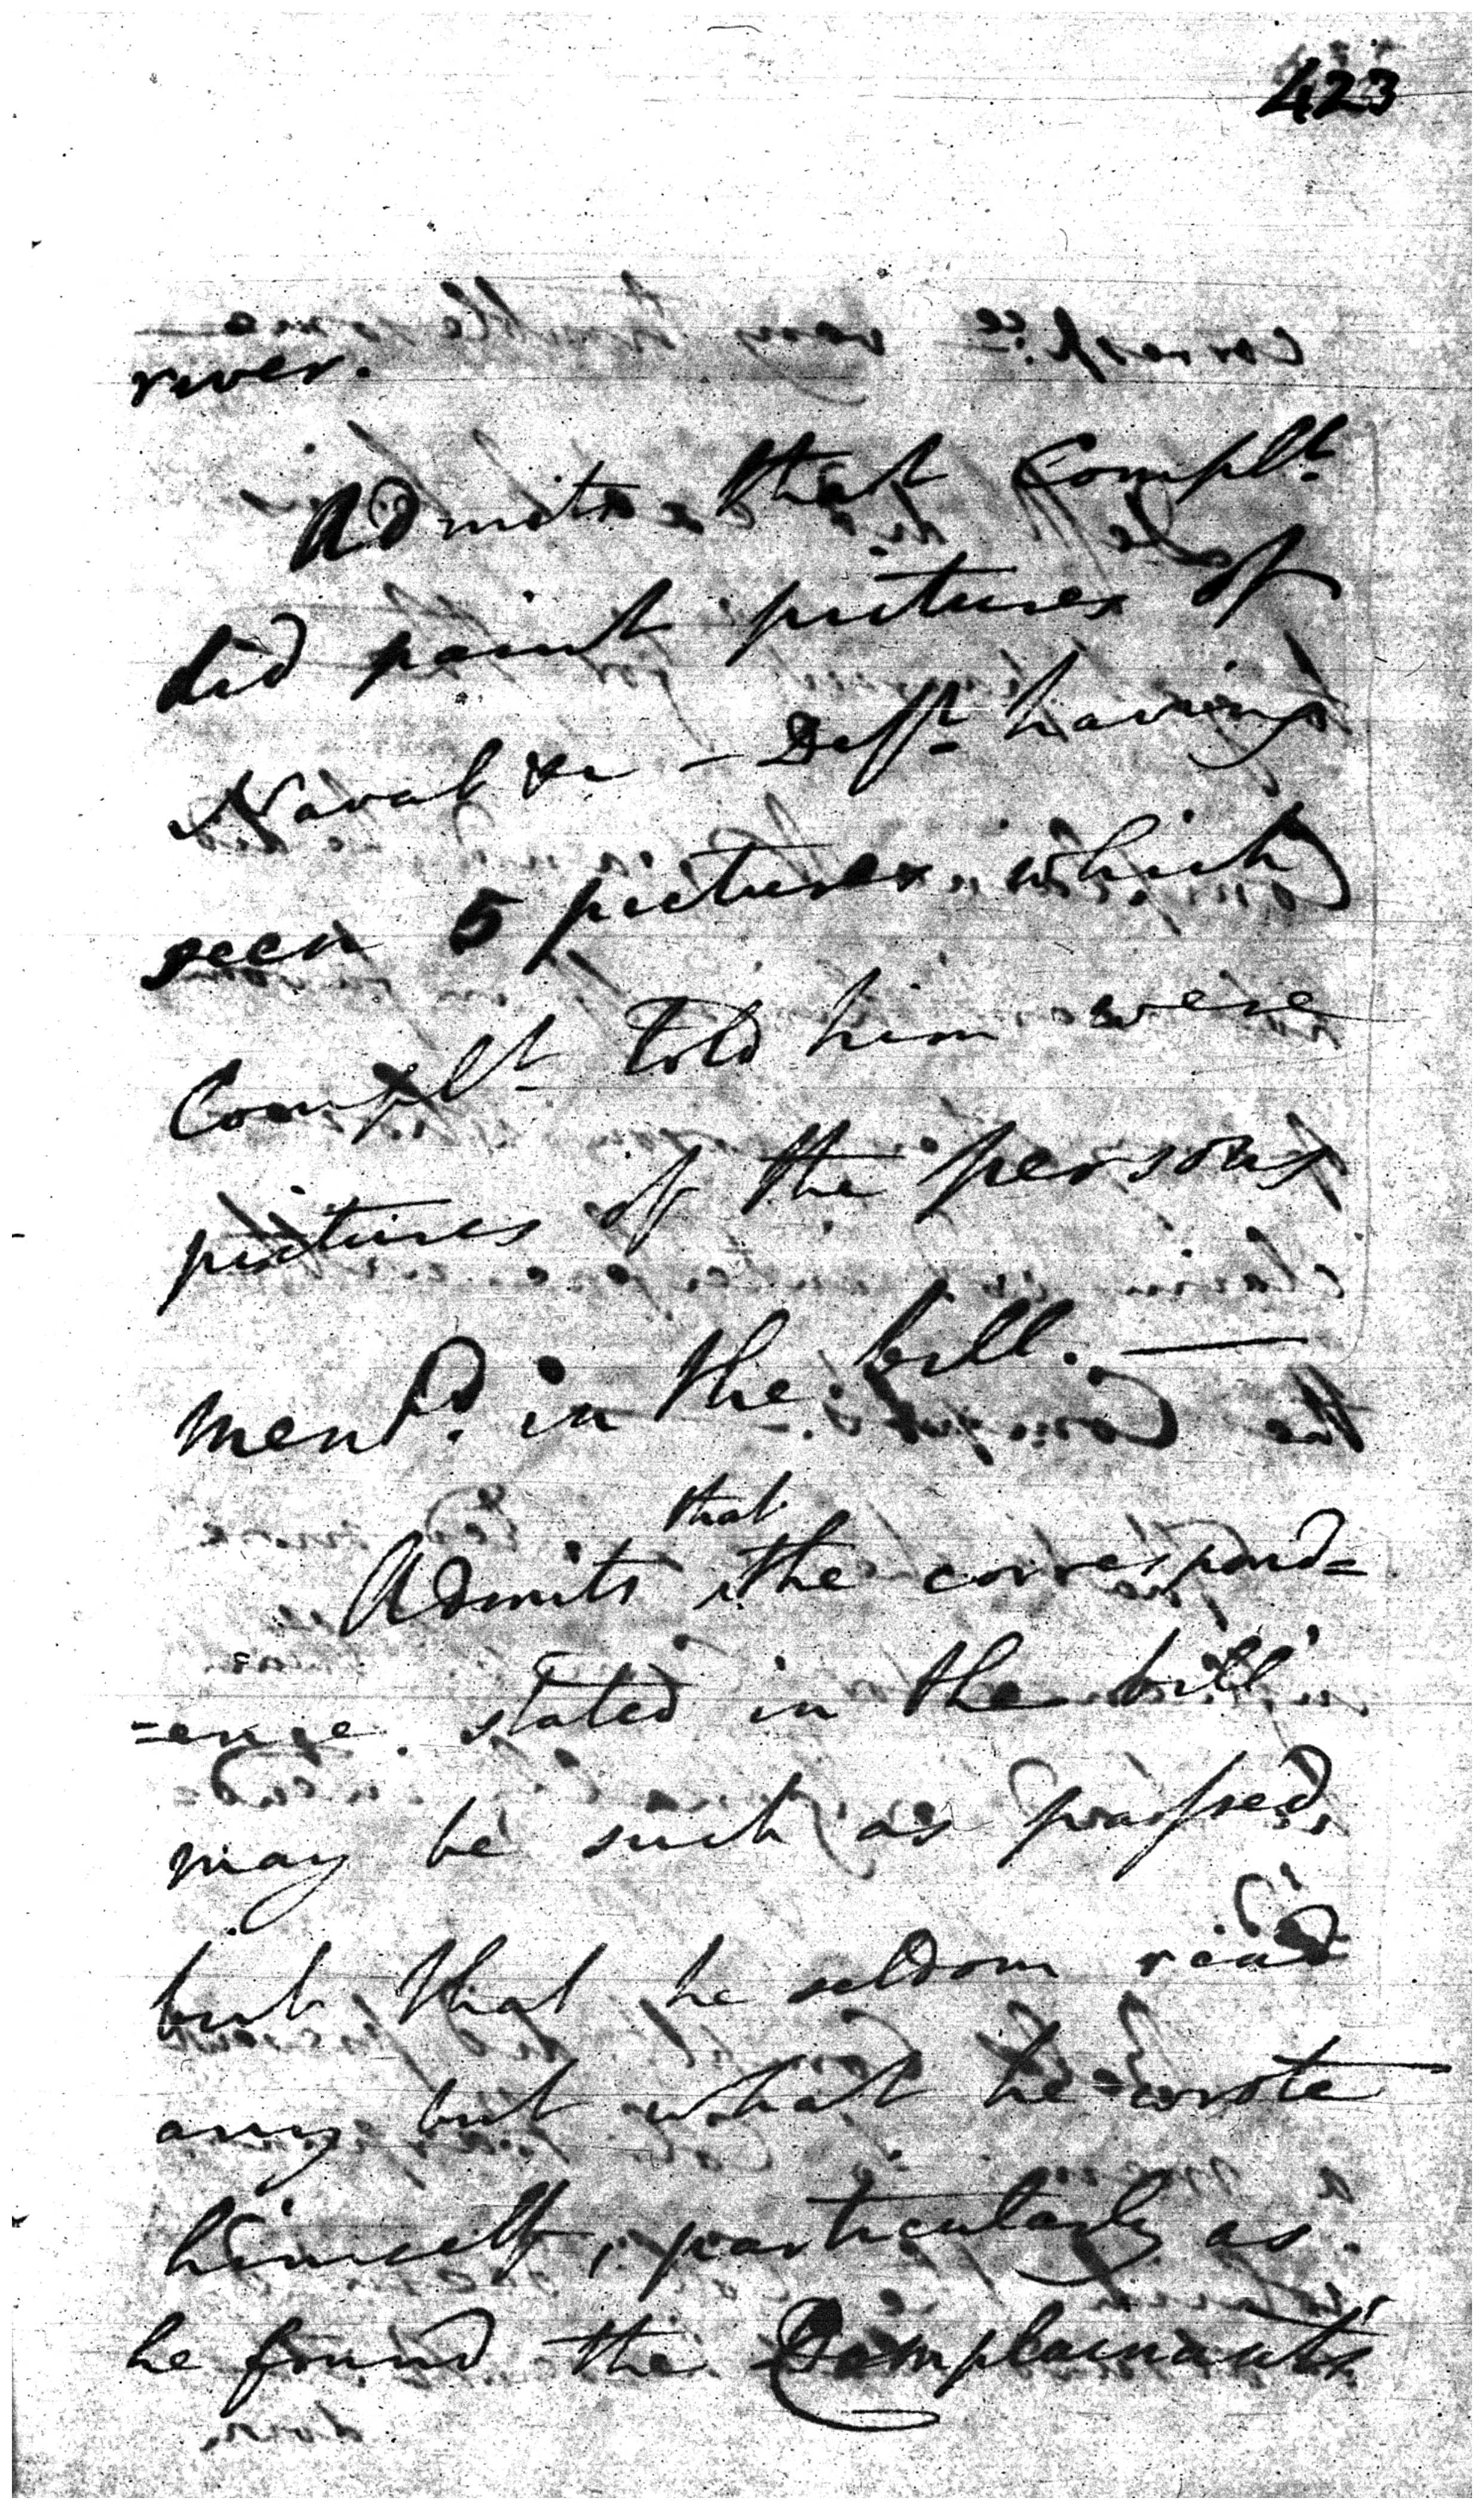 423
river.
Admits that Complt
did paint pictures of
Naval &c - Defft having
seen 5 pictures which
Complt told him were
pictures of the persons
mend. in the bill. —
that
Admits the correspond=
=ence stated in the bill
may be such as passed,
but that he seldom read
any but what he wrote
himself, particularly as
he found the Complainants